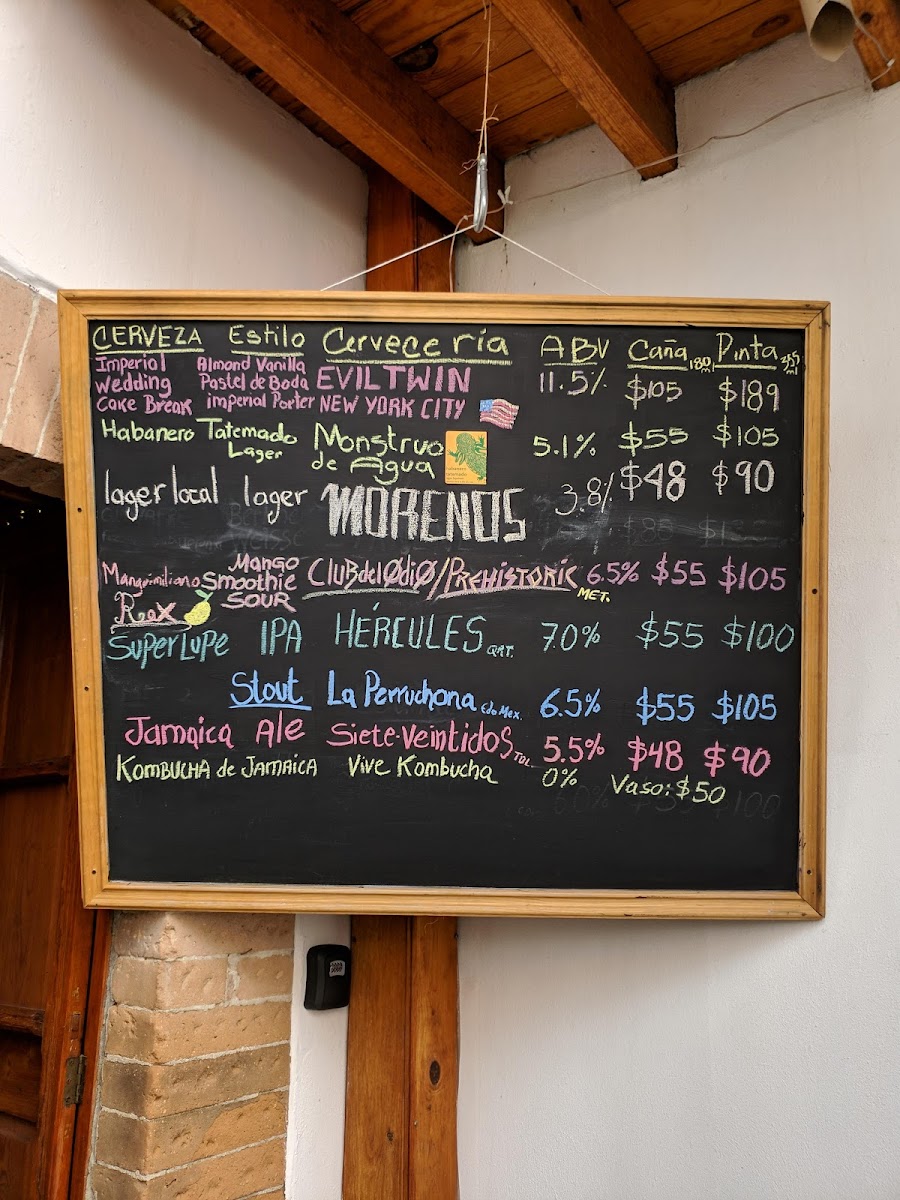 CERVEZA Estilo Cervecería ABV Caña 180 Pinta 355 ml
Imperial Almond Vanilla
Wedding Pastel de Boda EVIL TWIN 11.5% $105 $189
Cake Break imperial Porter NEW YORK CITY
Habanero Tatemado Monstruo 5.1% $55 $105
Lager de Agua
lager local lager MORENOS 3.8% $48 $90
Mangximiliano Mango Smoothie CLUB del ØdiØ/PREHISTORIC 6.5% $55 $105
Rex SOUR MET.
SuperLupe IPA HÉRCULES QRT. 7.0% $55 $100
Stout La Perruchona Cd. Mex. 6.5% $55 $105
Jamaica Ale Siete-Veintidos TOL. 5.5% $48 $90
KOMBUCHA de JAMAICA Vive Kombucha 0% Vaso: $50